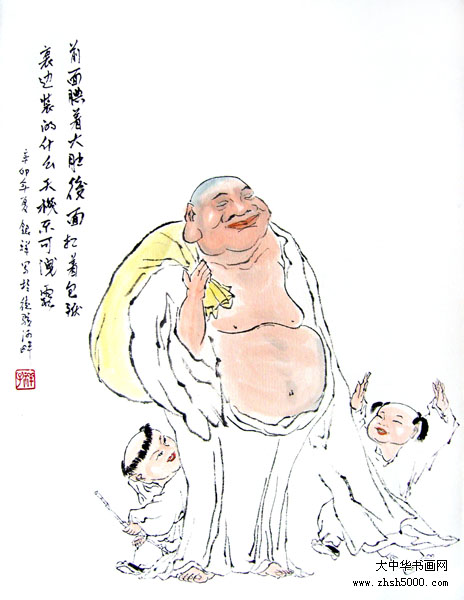 前面腆着大肚後面扛着包袱
裏边装的什么天機不可洩露
辛卯年夏
大中华书画网
www.zhsh5000.com